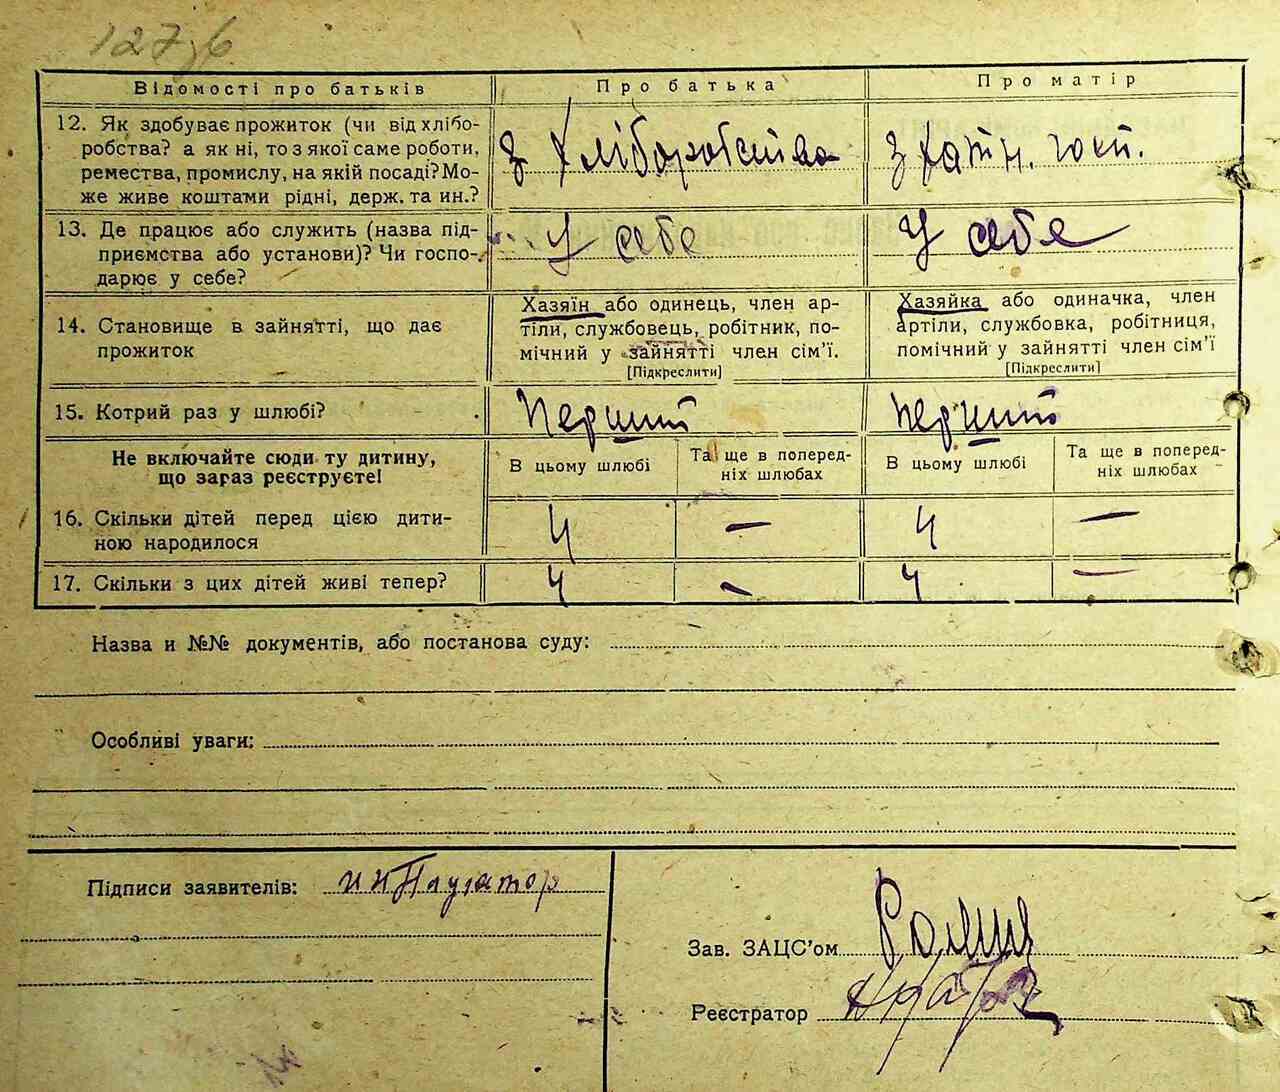 Відомості про батьків Про батька Про матір
12. Як здобуває прожиток (чи від хлібо-
робства? а як ні, то з якої саме роботи,
ремества, промислу, на якій посаді? Мо-
же живе коштами рідні, держ. та ин.?
з хліборобства з хатн. госп.
13. Де працює або служить (назва під-
приємства або установи)? Чи госпо-
дарює у себе?
У себе У себе
14. Становище в зайнятті, що дає
прожиток
Хазяїн або одинець, член ар-
тіли, службовець, робітник, по-
мічний у зайнятті член сім'ї.
[Підкреслити]
Хазяйка або одиначка, член
артіли, службовка, робітниця,
помічний у зайнятті член сім'ї
[Підкреслити]
15. Котрий раз у шлюбі? Перший Перший
Не включайте сюди ту дитину,
що зараз реєструєте!
В цьому шлюбі
Та ще в поперед-
ніх шлюбах
В цьому шлюбі
Та ще в поперед-
ніх шлюбах
16. Скільки дітей перед цією дити-
ною народилося
4 — 4 —
17. Скільки з цих дітей живі тепер? 4 — 4 —
Назва и №№ документів, або постанова суду:
Особливі уваги:
Підписи заявителів:
Зав. ЗАЦС'ом
Реєстратор